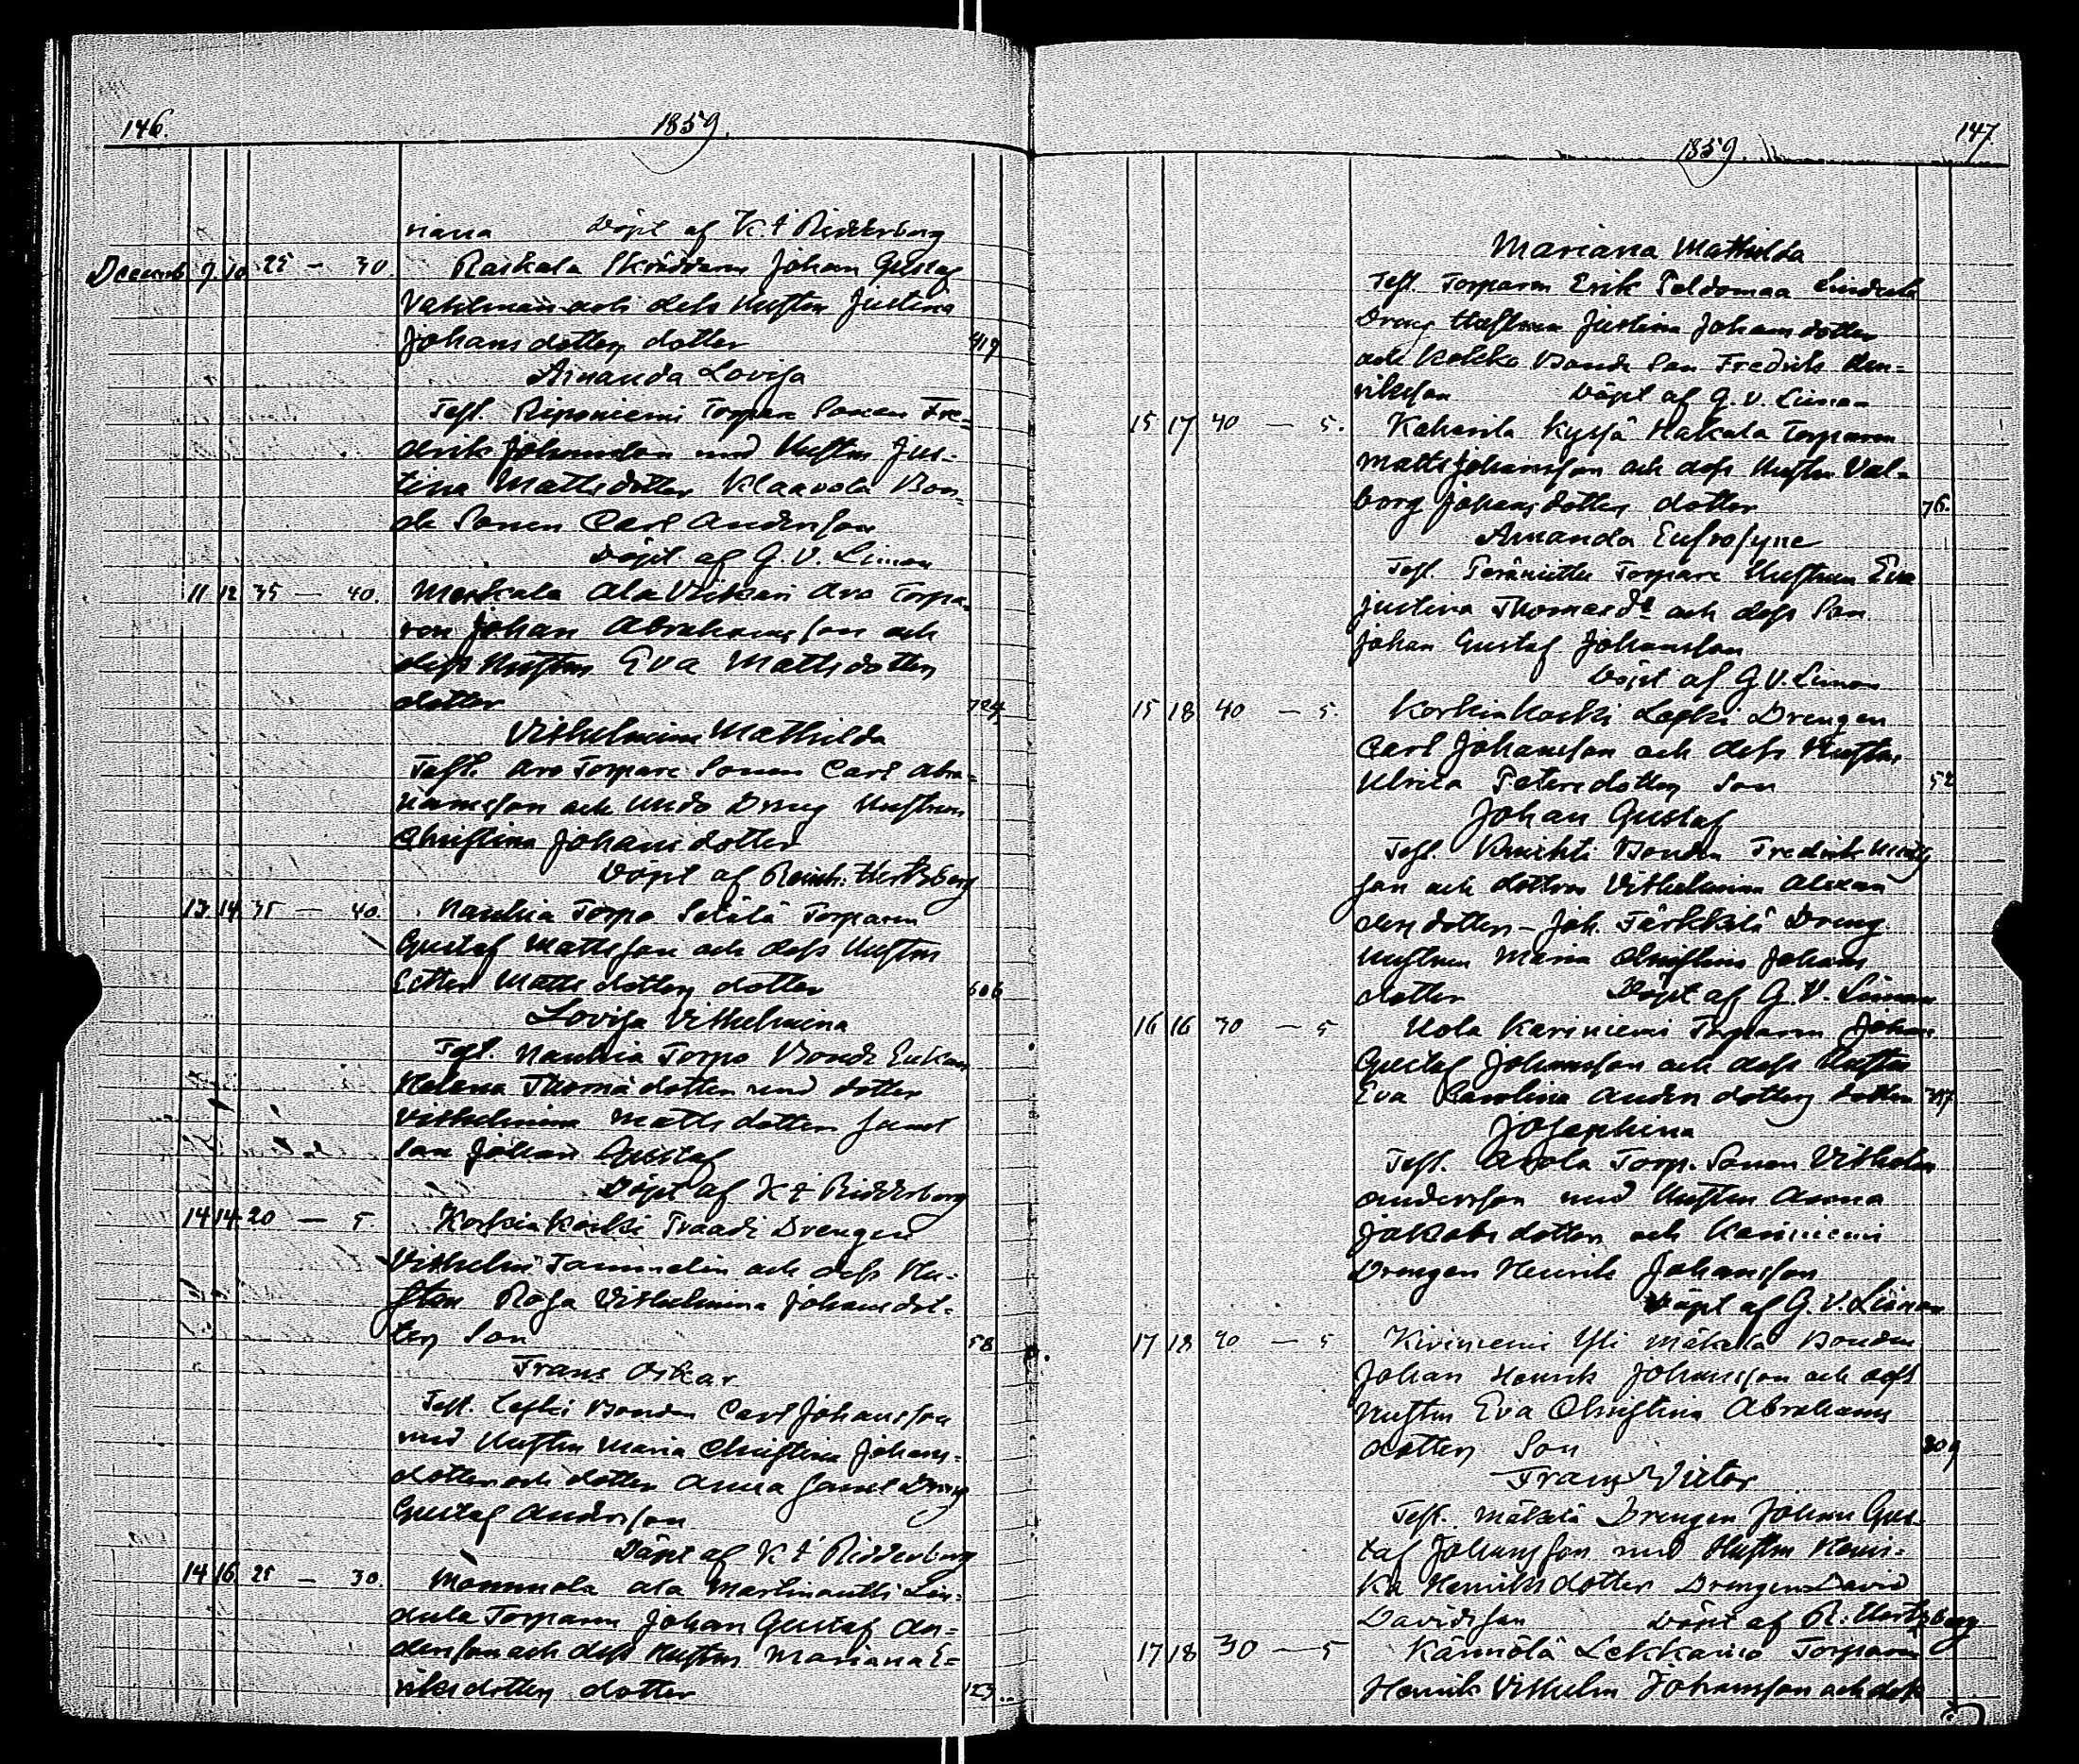 146.
1859.
riana Döpt af K. t Ridderborg
Decemb 9 10 25 — 30. Raskala Skräddaren Johan Gustaf
och dess Hustru Justina
Johansdotters dotter 417
Amanda Lovisa
Test. Riponiemi Torpare Sonen Fre=
drik Johansson med Hustru Jus-
tina Mattsdotter Klaavola Bon-
de Sonen Carl Andersson
Döpt af G. V. Liman
11 12 35 — 40. Ala Torpa-
ren Johan Abrahamsson och
dess Hustrus Eva Mattsdotters
dotter 724
Vilhelmina Mathilda
Test. Aro Torpare Sonen Carl Abra-
hamsson och Uudo Dräng Hustrun
Christina Johansdotter
Döpt af Reinh. Hertzberg
13 14 35 — 40. Nauhia Torpo Setälä Torparen
Gustaf Mattsson och dess Hustrus
Ester Mattsdotters dotter 606
Lovisa Vilhelmina
Test. Nauhia Torpo Bonde Enkan
Helena Thomädotter med dotter
Vilhelmina Mattsdotter samt
Son Johan Gustaf
Döpt af K t Ridderborg
14 14 20 — 5. Korkiakoski Traadi Drengen
Vilhelm Tammelin och dess Hu-
strus Rosa Vilhelmina Johansdot-
ters Son 58
Frans Oskar
Test. Lepki Bonden Carl Johansson
med Hustru Maria Christina Johans-
dotter och dotter Anna samt Dräng
Gustaf Andersson
Döpt af K t Ridderborg
14 16 25 — 30. Mommola ala Martinantti Lin-
dula Torparen Johan Gustaf An-
dersson och dess Hustrus Mariana E=
riksdotters dotter 123
147.
1859.
Mariana Mathilda
Test. Torparen Erik Peldomaa
Dräng Hustrun Justina Johansdotter
och Kokko Bonde Son Fredrik Hen-
riksson Döpt af G. V. Liman
15 17 40 — 5. Kaharila Kyssä Hakala Torparen
Matts Johansson och dess Hustru Val-
borg Johansdotters dotter 76.
Amanda Eufrosyne
Test. Torpare Hustrun Eva
Justina Thomasdr och dess Son
Johan Gustaf Johansson
Döpt af G. V. Liman
15 18 40 — 5. Korkiakoski Lepki Drengen
Carl Johansson och dess Hustrus
Ulrica Petersdotters Son 52
Johan Gustaf
Test. Knuhti Bonden Fredrik
son och dottren Vilhelmina Alexan
dersdotter — Joh. Järkkilä Dreng
Hustrun Maria Christina Johans
dotter Döpt af G. V. Liman
16 16 30 — 5 Uola Kariniemi Torparen Johan
Gustaf Johansson och dess Hustrus
Eva Carolina Andersdotters dotter 317
Josephina
Test. Arola Torp. Sonen Vilhelm
Andersson med Hustru Anna
Jakobsdotter och Kariniemi
Drengen Henrik Johansson
Döpt af G. V. Liman
17 18 40 — 5 Kiviniemi Yli Mäkelä Bonden
Johan Henrik Johansson och dess
Hustru Eva Christina Abrahams
dotters Son 309
Frans Victor
Test. Mäkelä Drengen Johan Gus-
taf Johansson med Hustru Henri-
ka Henriksdotter Drengen David
Davidsson Döpt af R. Hertzberg
17 18 30 — 5 Kärmölä Torparen
Henrik Vilhelm Johansson och dess